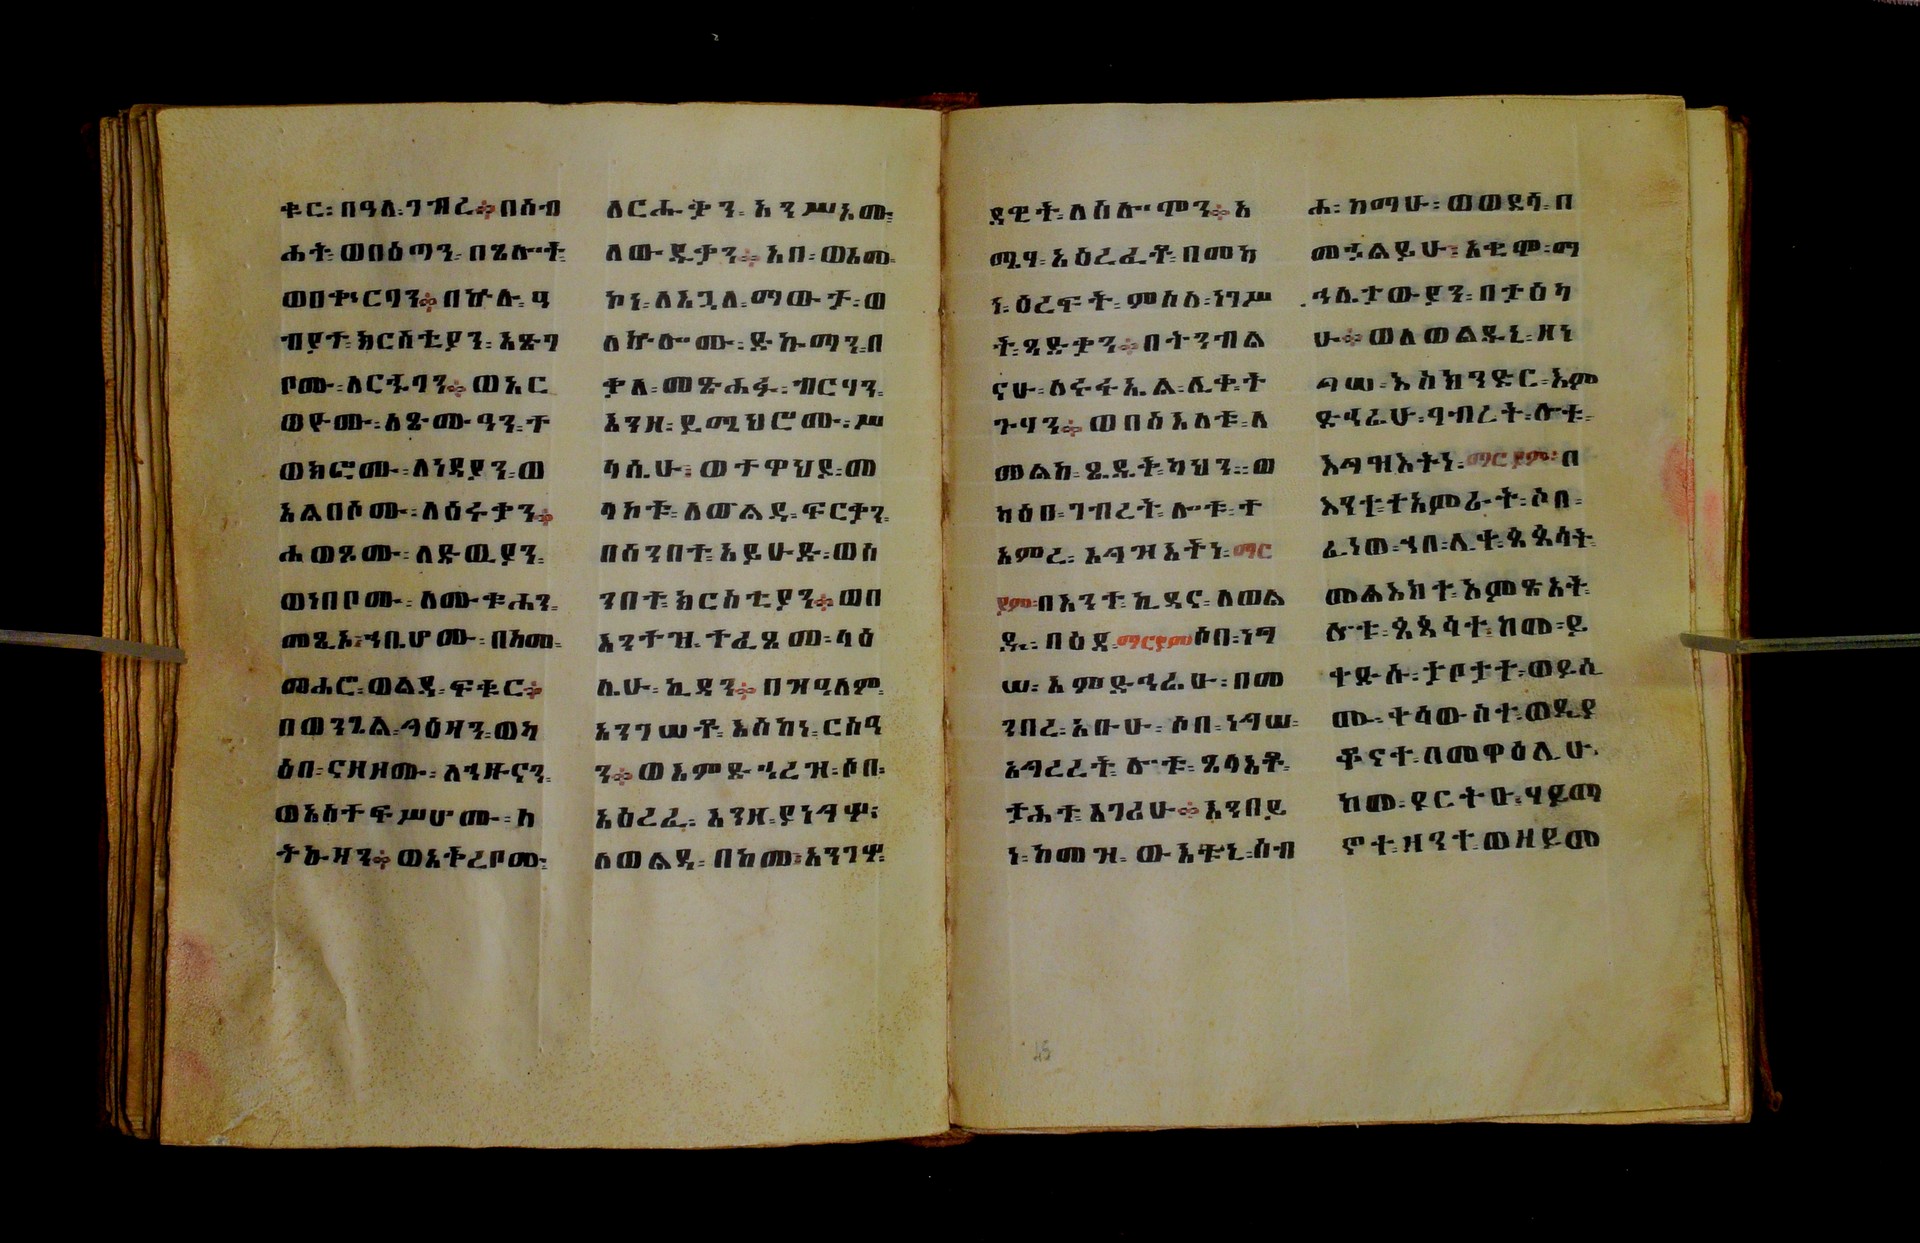 ቁር፡ በዓለ፡ ገብረ፨ በስብ
ሐት፡ ወበዕጣን፡ በጸሎት፡
ወበቍርባን፨ በኵሉ፡ ዓ
ብያተ፡ ክርስቲያን፡ አጽገ
ቦሙ፡ ለርኁባን፨ ወአር
ወዮሙ፡ ለጽሙዓን፡ ተ
ወክፎሙ፡ ለነዳያን፡ ወ
አልበሶሙ፡ ለዕሩቃን፨
ሐወጾሙ፡ ለድዉያን፡
ወነበቦሙ፡ ለሙቁሓን፡
መጺኦ፡ ኀቢሆሙ፡ በአመ፡
መሐሮ፡ ወልዳ፡ ፍቁር፨
በወንጌል፡ ጓዕዛን፡ ወካ
ዕበ፡ ናዘዞሙ፡ ለኅዙናን፡
ወአስተፍሥሆሙ፡ ለ
ትኩዛን፨ ወአትረቦሙ፡
ለርሑቃን፡ አንሥአሙ፡
ለውዱቃን፨ አበ፡ ወእመ፡
ኮነ፡ ለእጓለ፡ ማውታ፡ ወ
ለኵሎሙ፡ ድኩማን፡ በ
ቃለ፡ መጽሐፉ፡ ብርሃን፡
እንዘ፡ ይሜህሮሙ፡ ሥ
ላሴሁ፡ ወተዋህዶ፡ መ
ላኮቱ፡ ለወልዱ፡ ፍርቃን፡
በሰንበተ፡ አይሁድ፡ ወሰ
ንበተ፡ ክርስቲያን፨ ወበ
እንተዝ፡ ተፈጸመ፡ ላዕ
ሌሁ፡ ኪዳን፨ በዝዓለም፡
አንገሠቶ፡ እስከነ፡ ርስዓ
ን፨ ወእምድኅረዝ፡ ሶበ፡
አዕረፈ፡ እንዘ፡ ይነግሥ፡
ለወልዱ፡ በከመ፡ አንገሦ፡
ዳዊት፡ ለሰሎሞን፨ አ
ሜሃ፡ አዕረፈቶ፡ በመካ
ነ፡ ዕረፍት፡ ምስለ፡ ነገሥ
ት፡ ጻድቃን፨ በትንብል
ናሁ፡ ዕሩፋኤል፡ ሊቀ፡ ት
ጉሃን፨ ወበስእለቱ፡ ለ
መልከ፡ ጼዴቅ፡ ካህን። ወ
ካዕበ፡ ገብረት፡ ሎቱ፡ ተ
አምረ፡ እግዝእትነ፡ ማር
ያም፡ በእንተ፡ ኪዳና፡ ለወል
ዱ፡ በዕደ፡ ማርያም፡ ሶበ፡ ነግ
ሠ፡ እምድኅሬሁ፡ በመ
ንበረ፡ አቡሁ፡ ሶበ፡ ነግሠ፡
አግረረት፡ ሎቱ፡ ጸላእቶ፡
ታሕተ፡ እገሪሁ፨ እንበይ
ነ፡ ከመዝ፡ ውእቱኒ፡ ሰብ
ሐ፡ ከማሁ፡ ወወደሳ፡ በ
መኃልይሁ፡ አቂሞ፡ ማ
ኅሌታውያን፡ በታዕካ
ሁ፨ ወለወልዱኒ፡ ዘነ
ግሠ፡ እስክንድር፡ እም
ድኅሬሁ፡ ገብረት፡ ሎቱ፡
እግዝእትነ፡ ማርያም፡ በ
እንተ፡ ተአምሪት፡ ሶበ፡
ፈነወ፡ ኀበ፡ ሊቀ፡ ጳጳሳት፡
መልእክተ፡ እምጽአት፡
ሎቱ፡ ጳጳሳተ፡ ከመ፡ ይ
ተድሉ፡ ታቦታተ፡ ወይሲ
ሙ፡ ተላውስተ፡ ወዲያ
ቆናተ፡ በመዋዕሊሁ፡
ከመ፡ ይርትዑ፡ ሃይማ
ኖተ፡ ዛንተ፡ ወዘይመ